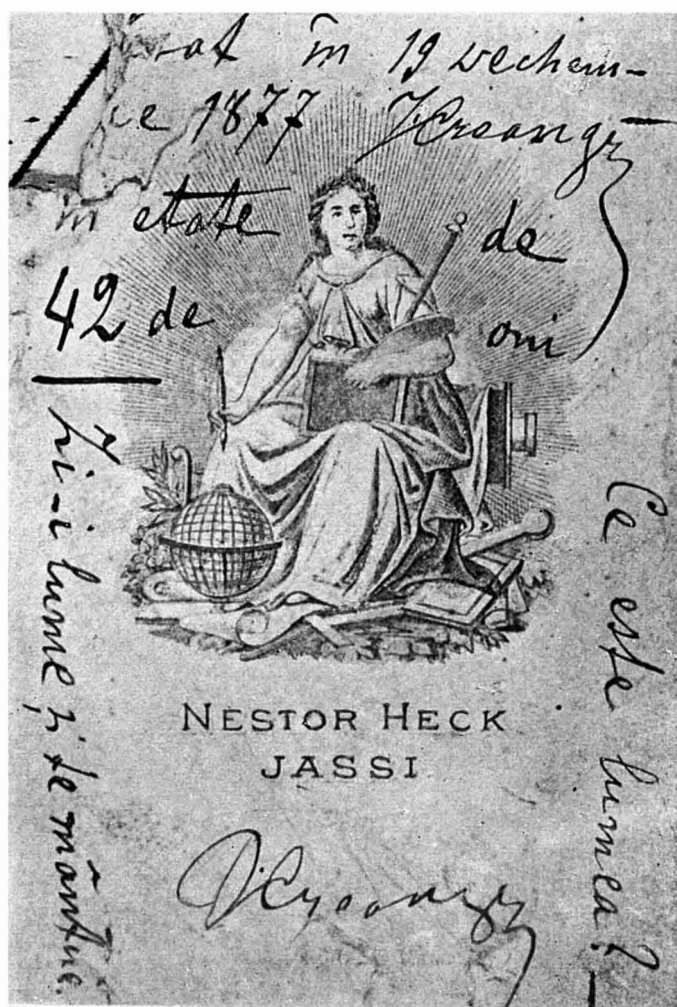 în 19 dechem-
1877 ICreangă
în etate de
42 de ani
Zi-i lume și te mântue.
Ce este lumea?
NESTOR HECK
JASSI
ICreangă